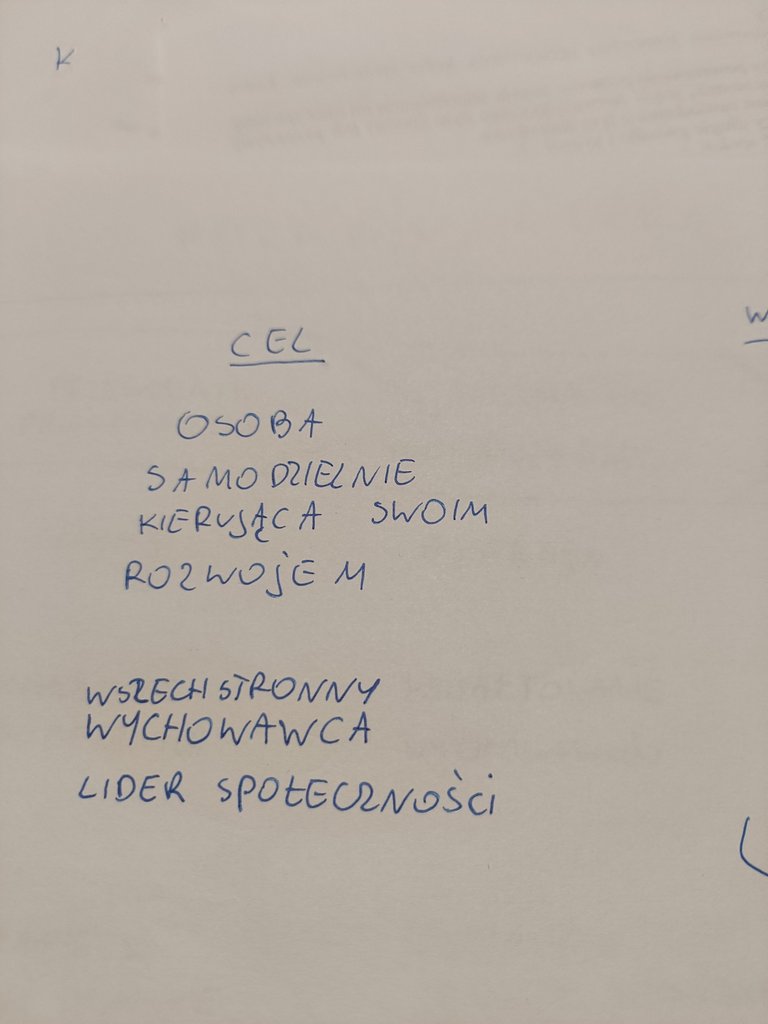 K
CEL
W
OSOBA
SAMODZIELNIE
KIERUJĄCA SWOIM
ROZWOJEM
WSZECHSTRONNY
WYCHOWAWCA
LIDER SPOŁECZNOŚCI